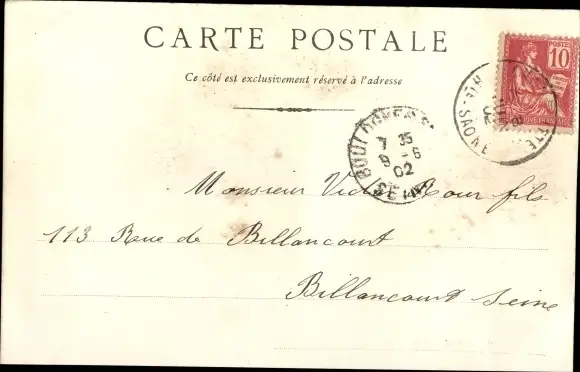 CARTE POSTALE
Ce côté est exclusivement réservé à l'adresse
10
SAONE
7 35
9 - 6
02
SEINE
Monsieur Victor Cour fils
113 Rue de Billancourt
Billancourt Seine